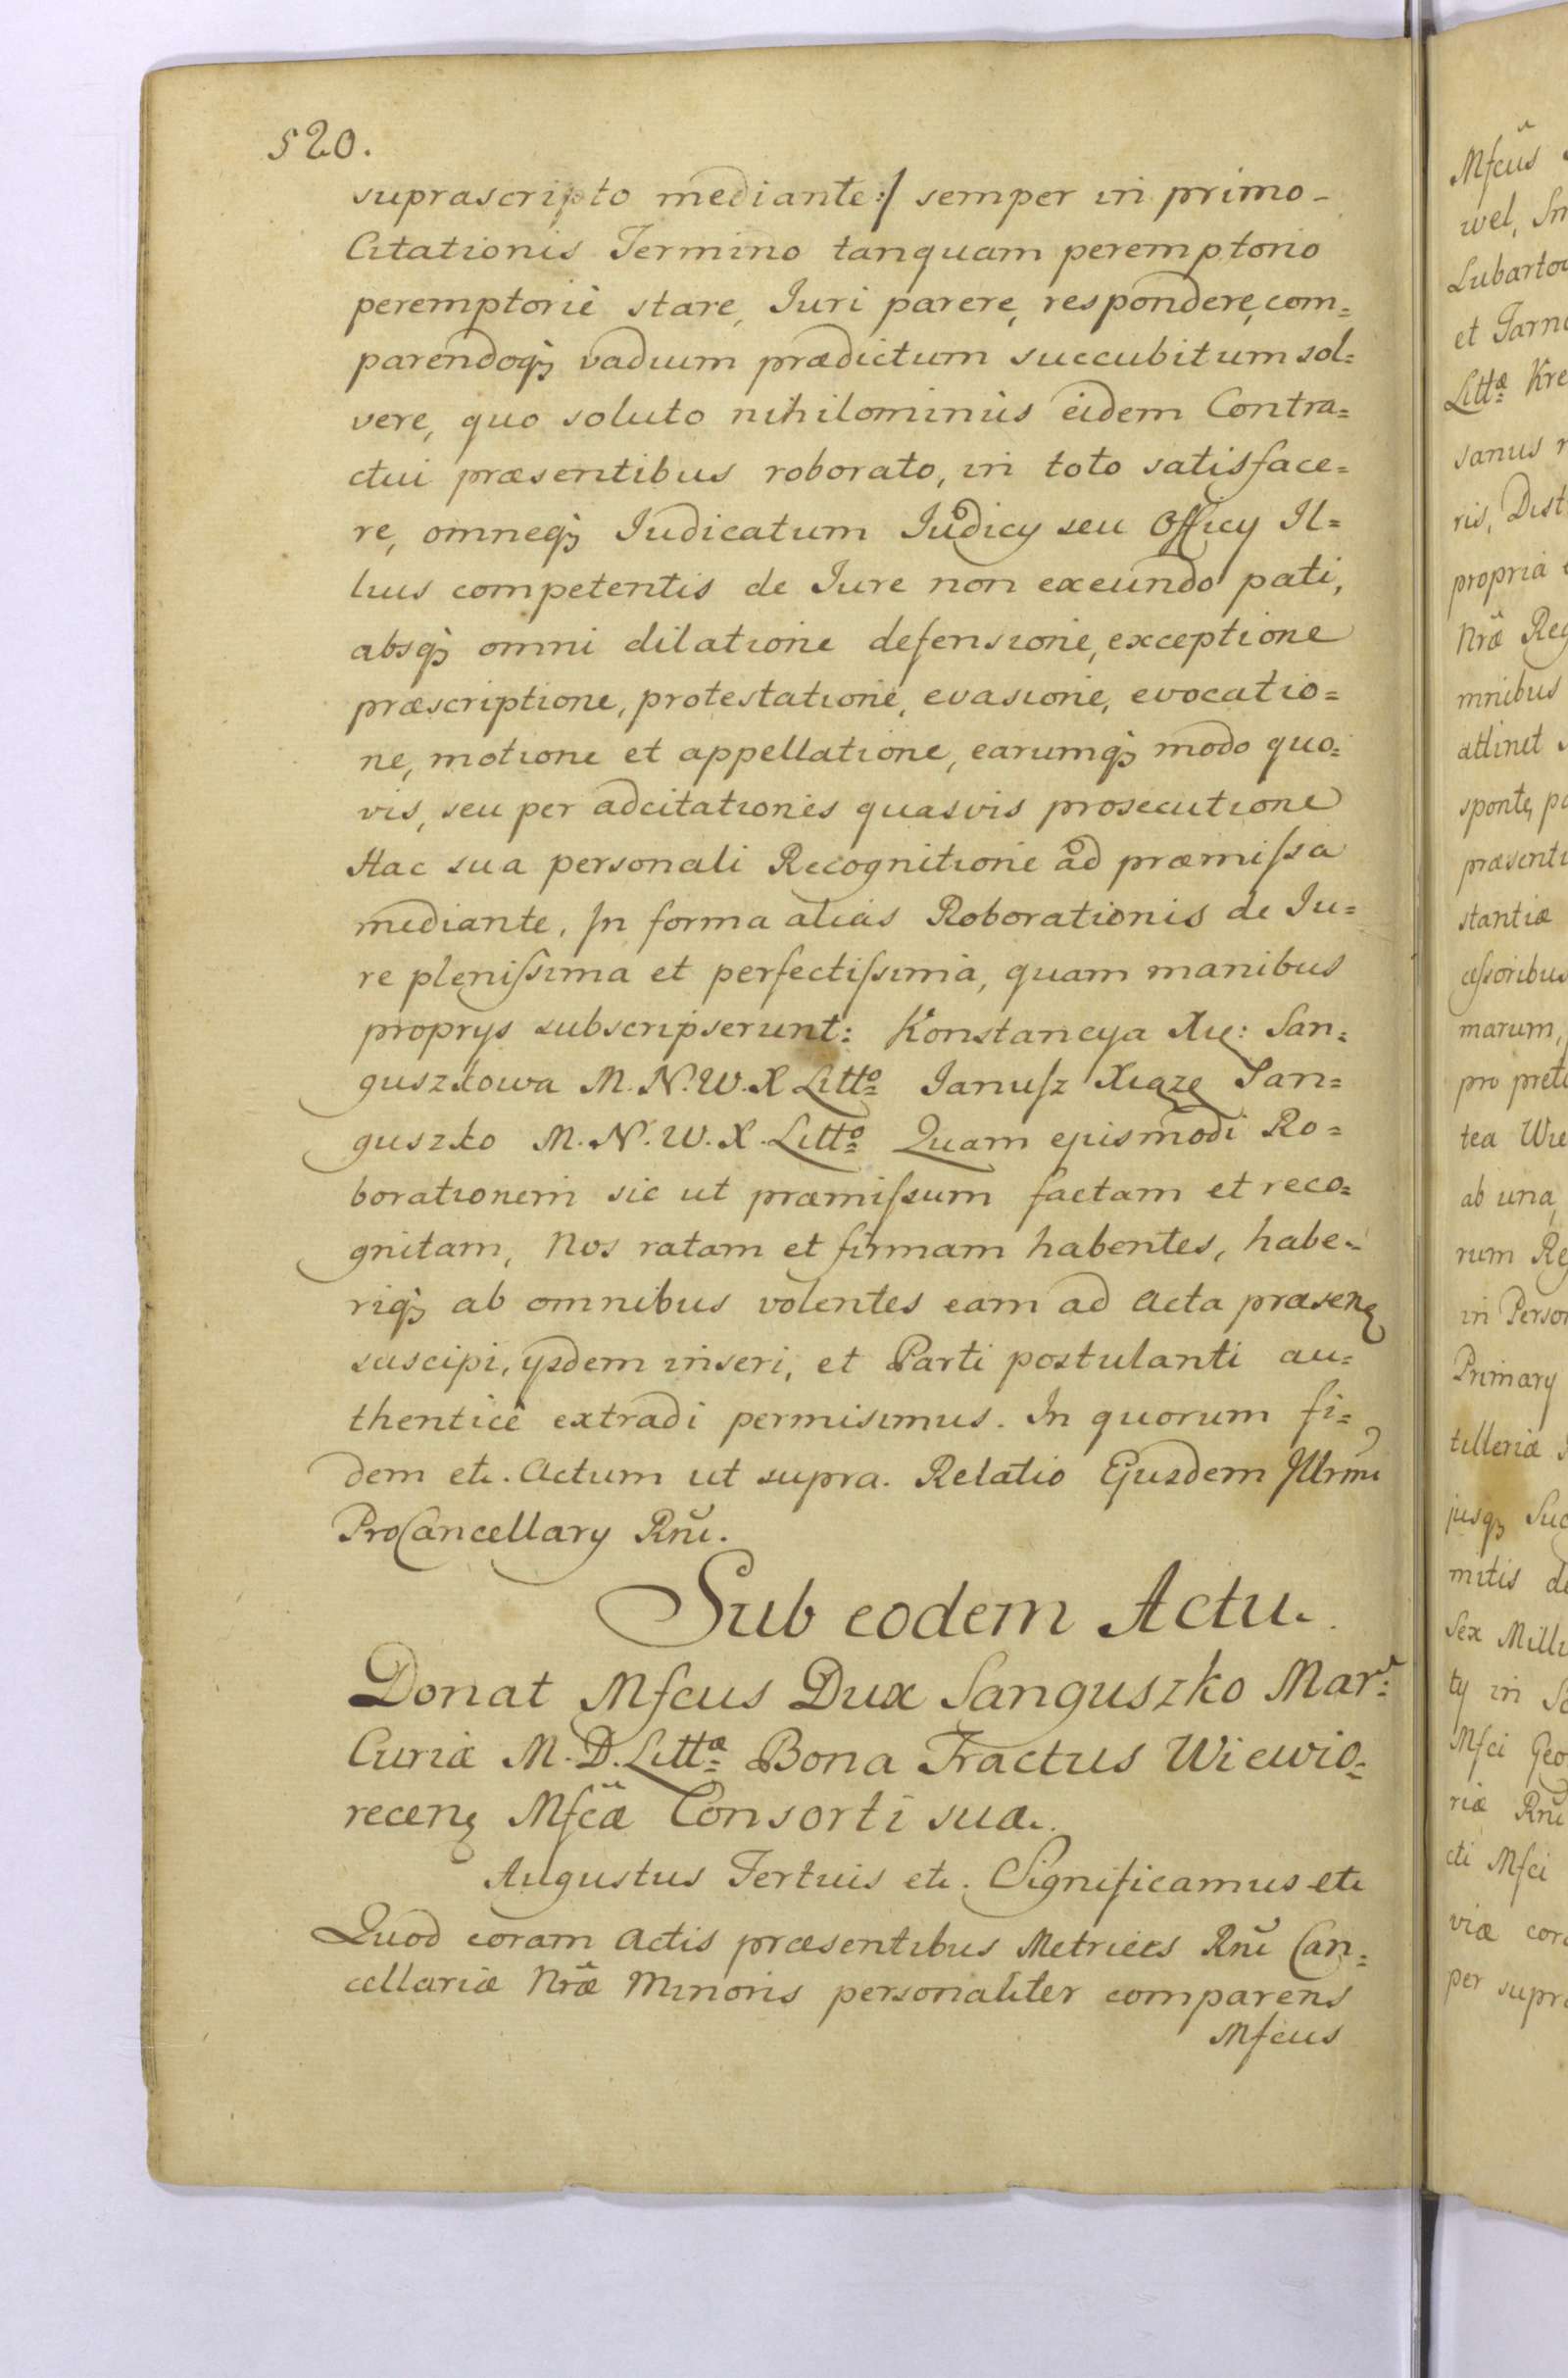 520.
suprascripto mediante:/ semper in primo -
Citationis Termino tanquam peremptorio
peremptoriè stare, Iuri parere, respondere, com=
parendoq; vadium prædictum succubitum sol=
vere, quo soluto nihilominùs eidem Contra=
ctui præsentibus roborato, in toto satisface=
re, omneq; Iudicatum Iudicy seu Officy Il=
lius competentis de Iure non exeundo pati,
absq; omni dilatione defensione, exceptione
præscriptione, protestatione, evasione, evocatio=
ne, motione et appellatione, earumq; modo quo=
vis, seu per adcitationes quasvis prosecutione
Hac sua personali Recognitione ad præmissa
mediante, In forma aliàs Roborationis de Iu=
re plenissima et perfectissima, quam manibus
proprys subscripserunt: Konstancya Xię: San=
guszkowa M. N. W. X Litto Ianusz Xiąże San=
guszko M. N. W. X. Litto Quam ejusmodi Ro=
borationem sic ut præmissum factam et reco=
gnitam, Nos ratam et firmam habentes, habe=
riq; ab omnibus volentes eam ad Acta præsenę
suscipi, ysdem inseri, et Parti postulanti au=
thenticè extradi permisimus. In quorum fi=
dem etc. Actum ut supra. Relatio Ejusdem Illrmi
ProCancellary Rñi.
Sub eodem Actu.
Donat Mfcus Dux Sanguszko Mar:
Curiæ M. D. Littæ Bona Tractus Wiewio=
recenę Mfcæ Consorti suæ.
Augustus Tertius etc. Significamus etc
Quod coram Actis præsentibus Metrices Rñi Can=
cellariæ Nræ Minoris personaliter comparens
Mfcus
Mfcus
wel, Sm
Lubartow
et Tarno
Littæ Kre
sanus
ris, Dist
propria
Nræ Reg
mnibus
attinet
sponte, pa
præsenti
stantiæ
cessoribus
marum,
pro preti
tea Wie
ab una,
rum Reg
in Person
Primary
tilleriæ
jusq; Suc
mitis de
Sex Milli
ty in So
Mfci Geo
riæ Rñi
cti Mfci
viæ cora
per supra